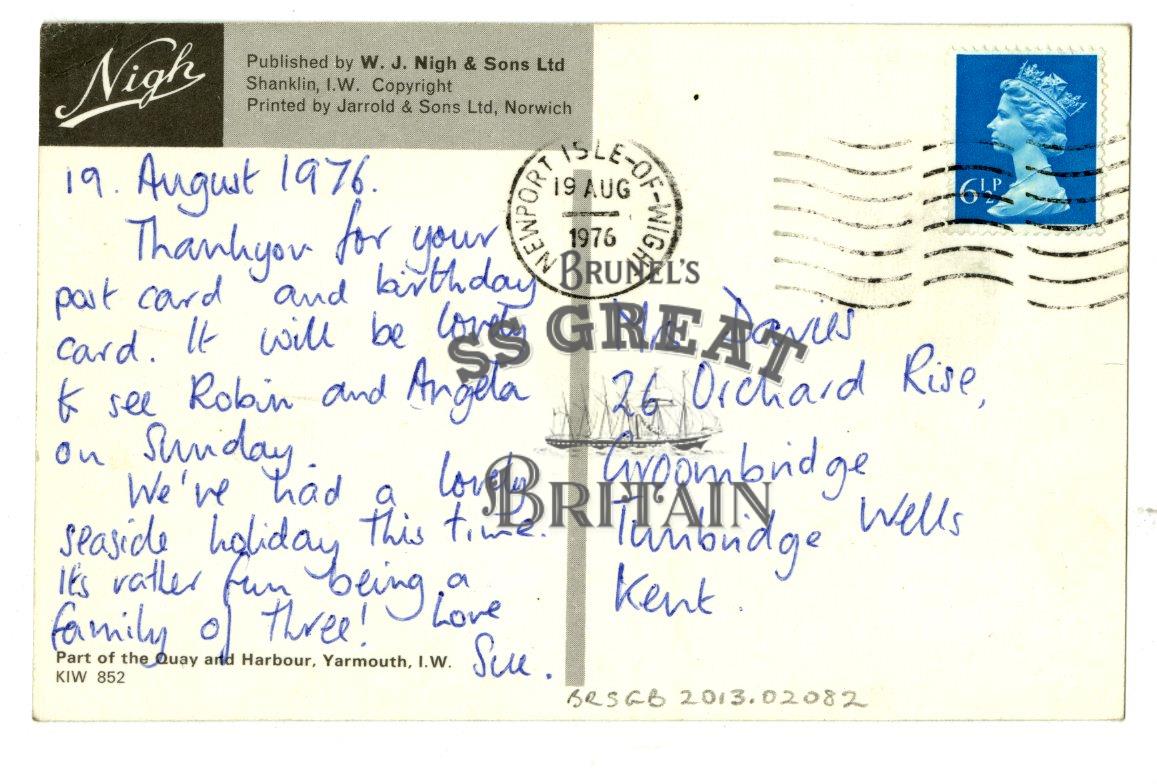 Nigh
Published by W. J. Nigh & Sons Ltd
Shanklin, I.W. Copyright
Printed by Jarrold & Sons Ltd, Norwich
19. August 1976.
Thankyou for your
post card and birthday
card. It will be lovely
to see Robin and Angela
on Sunday.
We've had a lovely
seaside holiday this time.
It's rather fun being a
family of three! Love
Sue.
Part of the Quay and Harbour, Yarmouth, I.W.
KIW 852
NEWPORT ISLE-OF-WIGHT
19 AUG
1976
6½P
BRUNEL'S
SS GREAT
BRITAIN
Davies
26 Orchard Rise,
Groombridge
Tunbridge Wells
Kent.
BRSGB 2013.02082